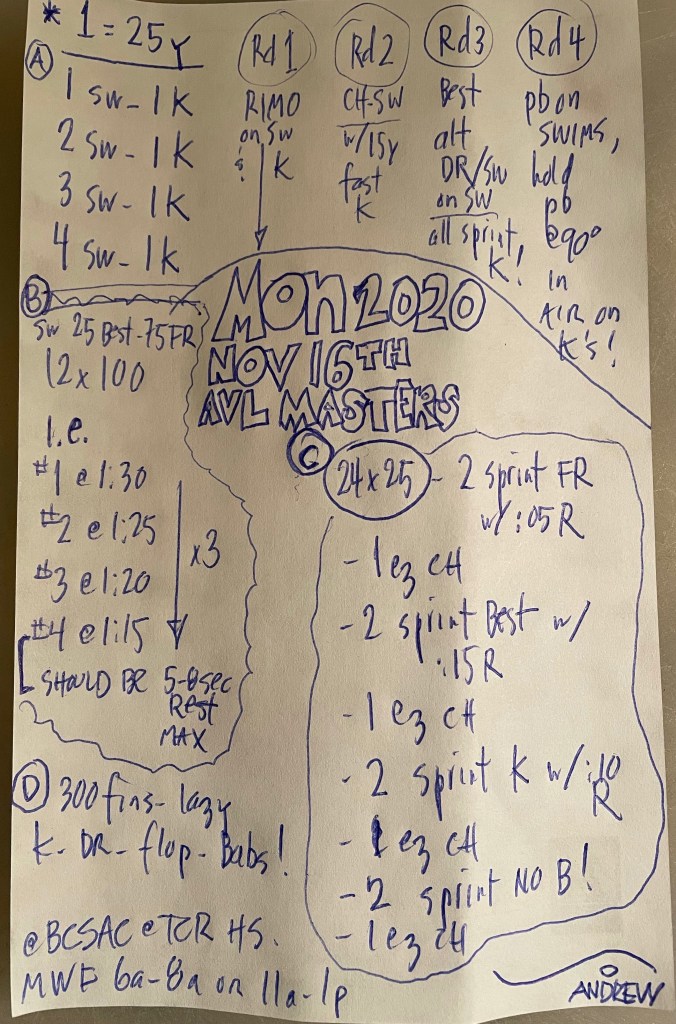 * 1 = 25y
(A)
1 sw - 1K
2 sw - 1K
3 sw - 1K
4 sw - 1K
Rd 1
RIMO
on sw
&
K
Rd 2
CH-SW
w/15y
fast
K
Rd3
Best
alt
DR/SW
on SW
all sprint
K!
Rd4
pb on
SWIMS,
hold
pb
@90°
in
AIR on
K's!
MON 2020
NOV 16TH
AVL MASTERS
(B)
SW 25 Best - 75 FR
12 x 100
I.e.
#1 @ 1:30
#2 @ 1:25
#3 @ 1:20
#4 @ 1:15
x3
SHOULD BE 5-8sec
Rest
MAX
(C)
24x25 - 2 sprint FR
w/ :05 R
- 1 ez CH
- 2 sprint Best w/
:15R
- 1 ez CH
- 2 sprint K w/ :10
R
- 1 ez CH
- 2 sprint NO B!
- 1 ez CH
(D) 300 fins - lazy
K - DR - flop - Babs!
@BCSAC @ TCR HS.
MWF 6a-8a or 11a-1p
ANDREW